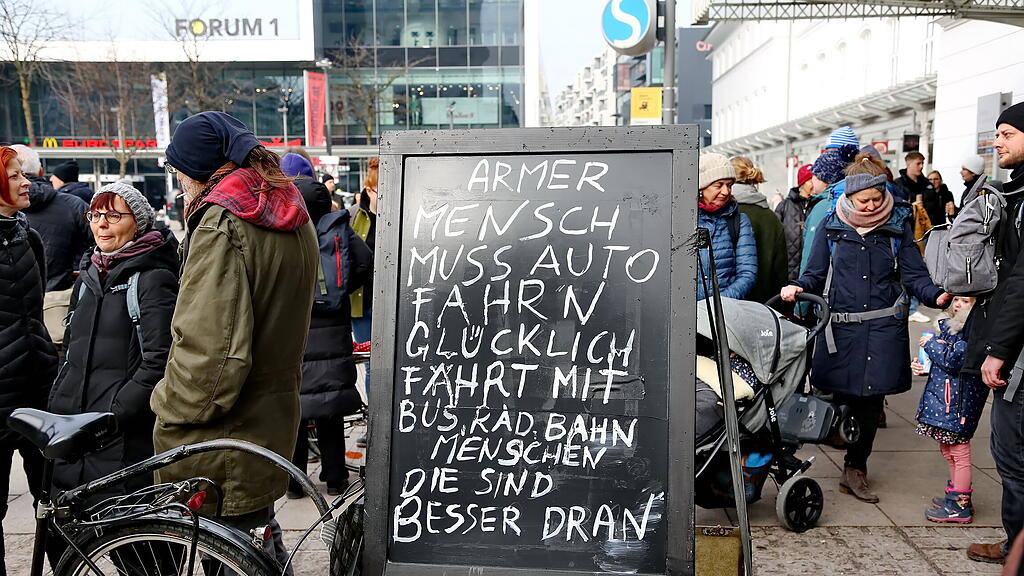 FORUM 1
S
ARMER
MENSCH
MUSS AUTO
FAHR'N
GLÜCKLICH
FÄHRT MIT
BUS, RAD, BAHN
MENSCHEN
DIE SIND
BESSER DRAN